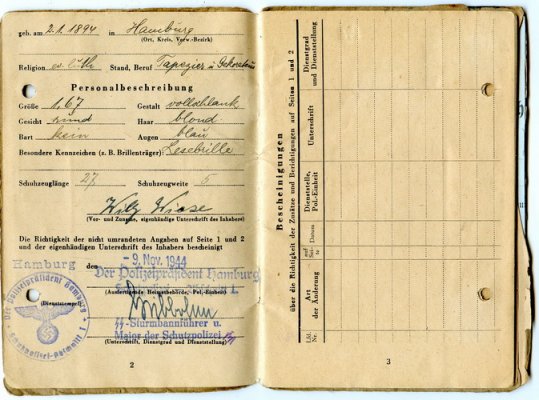 geb. am 2.1.1894 in Hamburg
(Ort, Kreis, Verw.-Bezirk)
Religion ev. luth. Stand, Beruf Tapezier u. Dekorateur
Personalbeschreibung
Größe 1,67 Gestalt vollschlank
Gesicht rund Haar blond
Bart kein Augen blau
Besondere Kennzeichen (z. B. Brillenträger): Lesebrille
Schuhzeuglänge 27 Schuhzeugweite 5
Wiese
(Vor- und Zuname, eigenhändige Unterschrift des Inhabers)
Die Richtigkeit der nicht umrandeten Angaben auf Seite 1 und 2
und der eigenhändigen Unterschrift des Inhabers bescheinigt
Hamburg den 9. Nov. 1944
Der Polizeipräsident Hamburg
(Ausfertigende Heimatbehörde, Pol.-Einheit)
(Dienststempel)
Der Polizeipräsident Hamburg
SS-Sturmbannführer u.
Major der Schutzpolizei
(Unterschrift, Dienstgrad und Dienststellung)
2
Bescheinigungen
über die Richtigkeit der Zusätze und Berichtigungen auf Seiten 1 und 2
Lfd. Nr.
Art der Änderung
auf Seite
Datum
Dienststelle, Pol.-Einheit
Unterschrift
Dienstgrad und Dienststellung
3